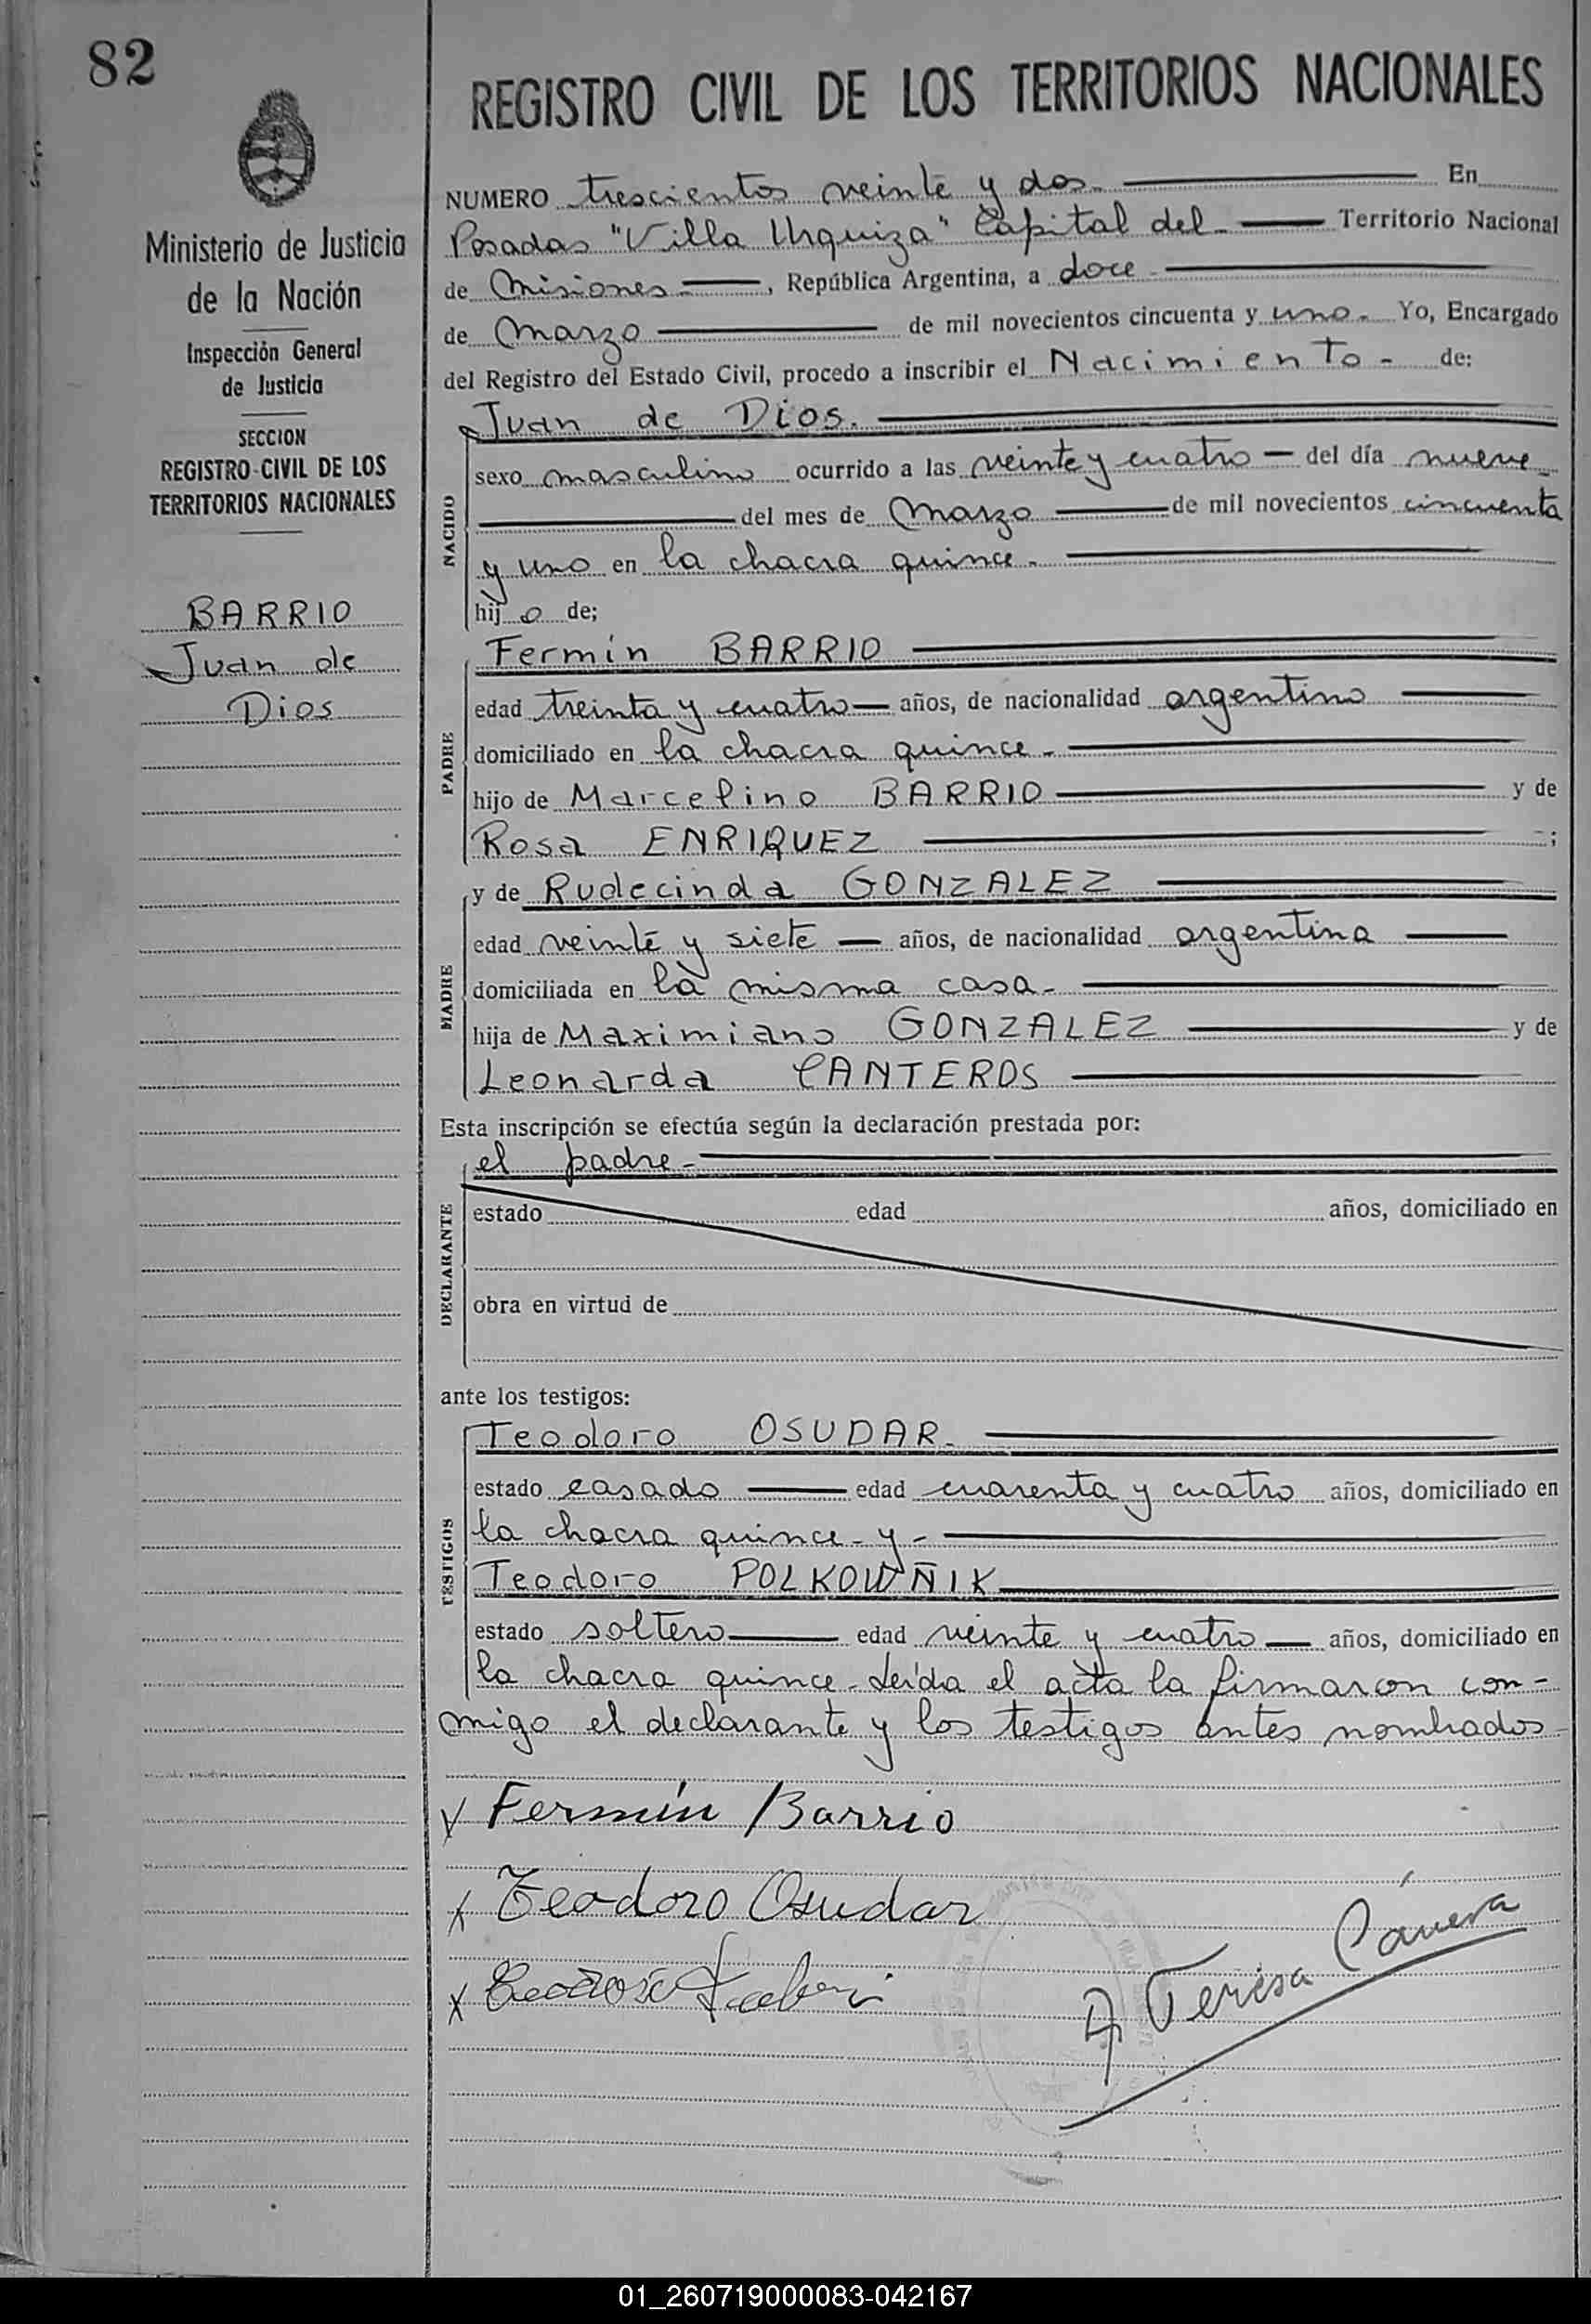 82
Ministerio de Justicia
de la Nación
Inspección General
de Justicia
SECCION
REGISTRO CIVIL DE LOS
TERRITORIOS NACIONALES
BARRIO
Juan de
Dios
REGISTRO CIVIL DE LOS TERRITORIOS NACIONALES
NUMERO trescientos veinte y dos. En
Posadas "Villa Urquiza" Capital del Territorio Nacional
de Misiones, República Argentina, a doce
de Marzo de mil novecientos cincuenta y uno. Yo, Encargado
del Registro del Estado Civil, procedo a inscribir el Nacimiento - de:
Juan de Dios.
NACIDO
sexo masculino ocurrido a las veinte y cuatro — del día nueve
del mes de Marzo de mil novecientos cincuenta
y uno en la chacra quince.
hijo de;
PADRE
Fermín BARRIO
edad treinta y cuatro — años, de nacionalidad argentino
domiciliado en la chacra quince.
hijo de Marcelino BARRIO y de
Rosa ENRIQUEZ ;
MADRE
y de Rudecinda GONZALEZ
edad veinte y siete — años, de nacionalidad argentina
domiciliada en la misma casa.
hija de Maximiano GONZALEZ y de
Leonarda CANTEROS
Esta inscripción se efectúa según la declaración prestada por:
DECLARANTE
el padre.
estado edad años, domiciliado en
obra en virtud de
ante los testigos:
TESTIGOS
Teodoro OSUDAR.
estado casado edad cuarenta y cuatro años, domiciliado en
la chacra quince - y -
Teodoro POLKOWÑIK
estado soltero edad veinte y cuatro — años, domiciliado en
la chacra quince. Leída el acta la firmaron con-
migo el declarante y los testigos antes nombrados
Fermín Barrio
Teodoro Osudar
Teresa
01_260719000083-042167